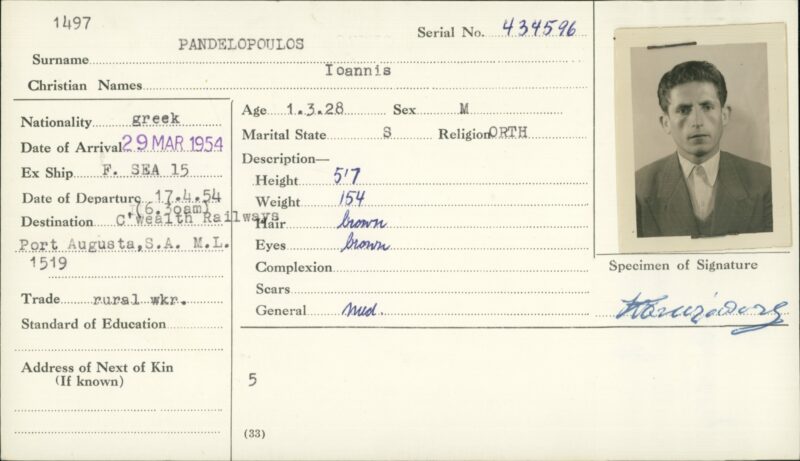 1497
Serial No. 434596
PANDELOPOULOS
Surname
Ioannis
Christian Names
Nationality greek
Date of Arrival 29 MAR 1954
Ex Ship F. SEA 15
Date of Departure 17.4.54
(6.30am)
Destination C'wealth Railways
Port Augusta, S.A. M.L.
1519
Trade rural wkr.
Standard of Education
Address of Next of Kin
(If known)
Age 1.3.28 Sex M
Marital State S Religion ORTH
Description—
Height 5'7
Weight 154
Hair brown
Eyes brown
Complexion
Scars
General Med.
5
(33)
Specimen of Signature